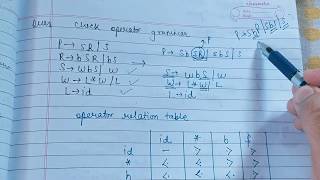 Ques check operator grammar
P → SR | S
R → b SR | bS
S → W b S | W
W → L * W | L
L → id
→
P
P → Sb SR | SbS | S
S → W b S | W
W → L * W | L
L → id
P → SbP | SbS | S
operator relation table
id * b $
id - > > >
* < < >
b